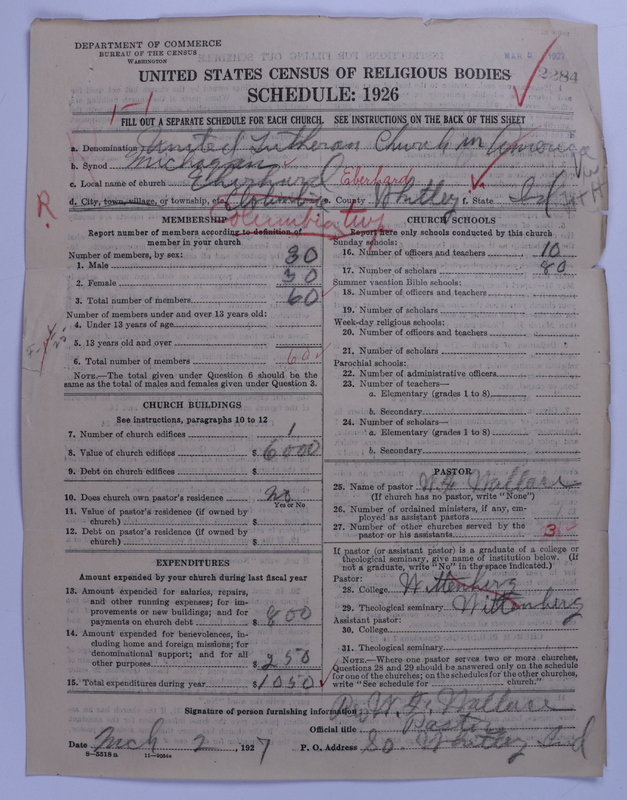 DEPARTMENT OF COMMERCE
BUREAU OF THE CENSUS
WASHINGTON
MAR 1927
2284
UNITED STATES CENSUS OF RELIGIOUS BODIES
SCHEDULE: 1926
1-1
FILL OUT A SEPARATE SCHEDULE FOR EACH CHURCH. SEE INSTRUCTIONS ON THE BACK OF THIS SHEET
a. Denomination United Lutheran Church in America
b. Synod Michigan
c. Local name of church Eberhard Eberhard
d. City, town, village, or township, etc. Columbia e. County Whitley f. State Ind
Columbia twp
R
MEMBERSHIP
Report number of members according to definition of
member in your church
Number of members, by sex:
1. Male 30
2. Female 30
3. Total number of members 60
Number of members under and over 13 years old:
4. Under 13 years of age
5. 13 years old and over
6. Total number of members 60
NOTE.—The total given under Question 6 should be the
same as the total of males and females given under Question 3.
CHURCH BUILDINGS
See instructions, paragraphs 10 to 12
7. Number of church edifices 1
8. Value of church edifices $ 6000
9. Debt on church edifices $
10. Does church own pastor's residence no
Yes or No
11. Value of pastor's residence (if owned by
church) $
12. Debt on pastor's residence (if owned by
church) $
EXPENDITURES
Amount expended by your church during last fiscal year
13. Amount expended for salaries, repairs,
and other running expenses; for im-
provements or new buildings; and for
payments on church debt $ 800
14. Amount expended for benevolences, in-
cluding home and foreign missions; for
denominational support; and for all
other purposes $ 250
15. Total expenditures during year $ 1050
CHURCH SCHOOLS
Report here only schools conducted by this church
Sunday schools:
16. Number of officers and teachers 10
17. Number of scholars 80
Summer vacation Bible schools:
18. Number of officers and teachers
19. Number of scholars
Week-day religious schools:
20. Number of officers and teachers
21. Number of scholars
Parochial schools:
22. Number of administrative officers
23. Number of teachers—
a. Elementary (grades 1 to 8)
b. Secondary
24. Number of scholars—
a. Elementary (grades 1 to 8)
b. Secondary
PASTOR
25. Name of pastor W. H. Wallace
(If church has no pastor, write "None")
26. Number of ordained ministers, if any, em-
ployed as assistant pastors
27. Number of other churches served by the
pastor or his assistants 3
If pastor (or assistant pastor) is a graduate of a college or
theological seminary, give name of institution below. (If
not a graduate, write "No" in the space indicated.)
Pastor:
28. College Wittenberg
29. Theological seminary Wittenberg
Assistant pastor:
30. College
31. Theological seminary
NOTE.—Where one pastor serves two or more churches,
Questions 28 and 29 should be answered only on the schedule
for one of the churches; on the schedules for the other churches,
write "See schedule for church."
Signature of person furnishing information W. H. Wallace
Official title Pastor
Date Mch 2, 1927 P. O. Address So Whitley Ind
8-5518a 11-9094a